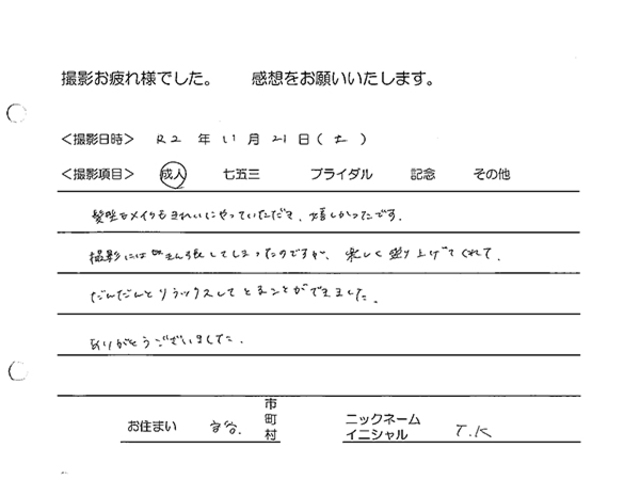 撮影お疲れ様でした。 感想をお願いいたします。
<撮影日時> R2 年 11 月 21 日(土)
<撮影項目> 成人 七五三 ブライダル 記念 その他
髪型もメイクもきれいにやっていただき、嬉しかったです。
撮影にはきん張してしまったのですが、楽しく盛り上げてくれて、
だんだんとリラックスしてとることができました。
ありがとうございました。
お住まい 市町村
ニックネーム イニシャル T.K